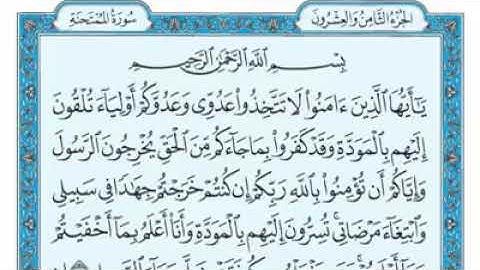 الجزء الثامن والعشرون
سورة الممتحنة
بِسْمِ اللَّهِ الرَّحْمَٰنِ الرَّحِيمِ
يَٰٓأَيُّهَا الَّذِينَ ءَامَنُوا لَا تَتَّخِذُوا عَدُوِّى وَعَدُوَّكُمْ أَوْلِيَآءَ تُلْقُونَ
إِلَيْهِم بِالْمَوَدَّةِ وَقَدْ كَفَرُوا بِمَا جَآءَكُم مِّنَ الْحَقِّ يُخْرِجُونَ الرَّسُولَ
وَإِيَّاكُمْ أَن تُؤْمِنُوا بِاللَّهِ رَبِّكُمْ إِن كُنتُمْ خَرَجْتُمْ جِهَٰدًا فِى سَبِيلِى
وَابْتِغَآءَ مَرْضَاتِى تُسِرُّونَ إِلَيْهِم بِالْمَوَدَّةِ وَأَنَا۠ أَعْلَمُ بِمَآ أَخْفَيْتُمْ